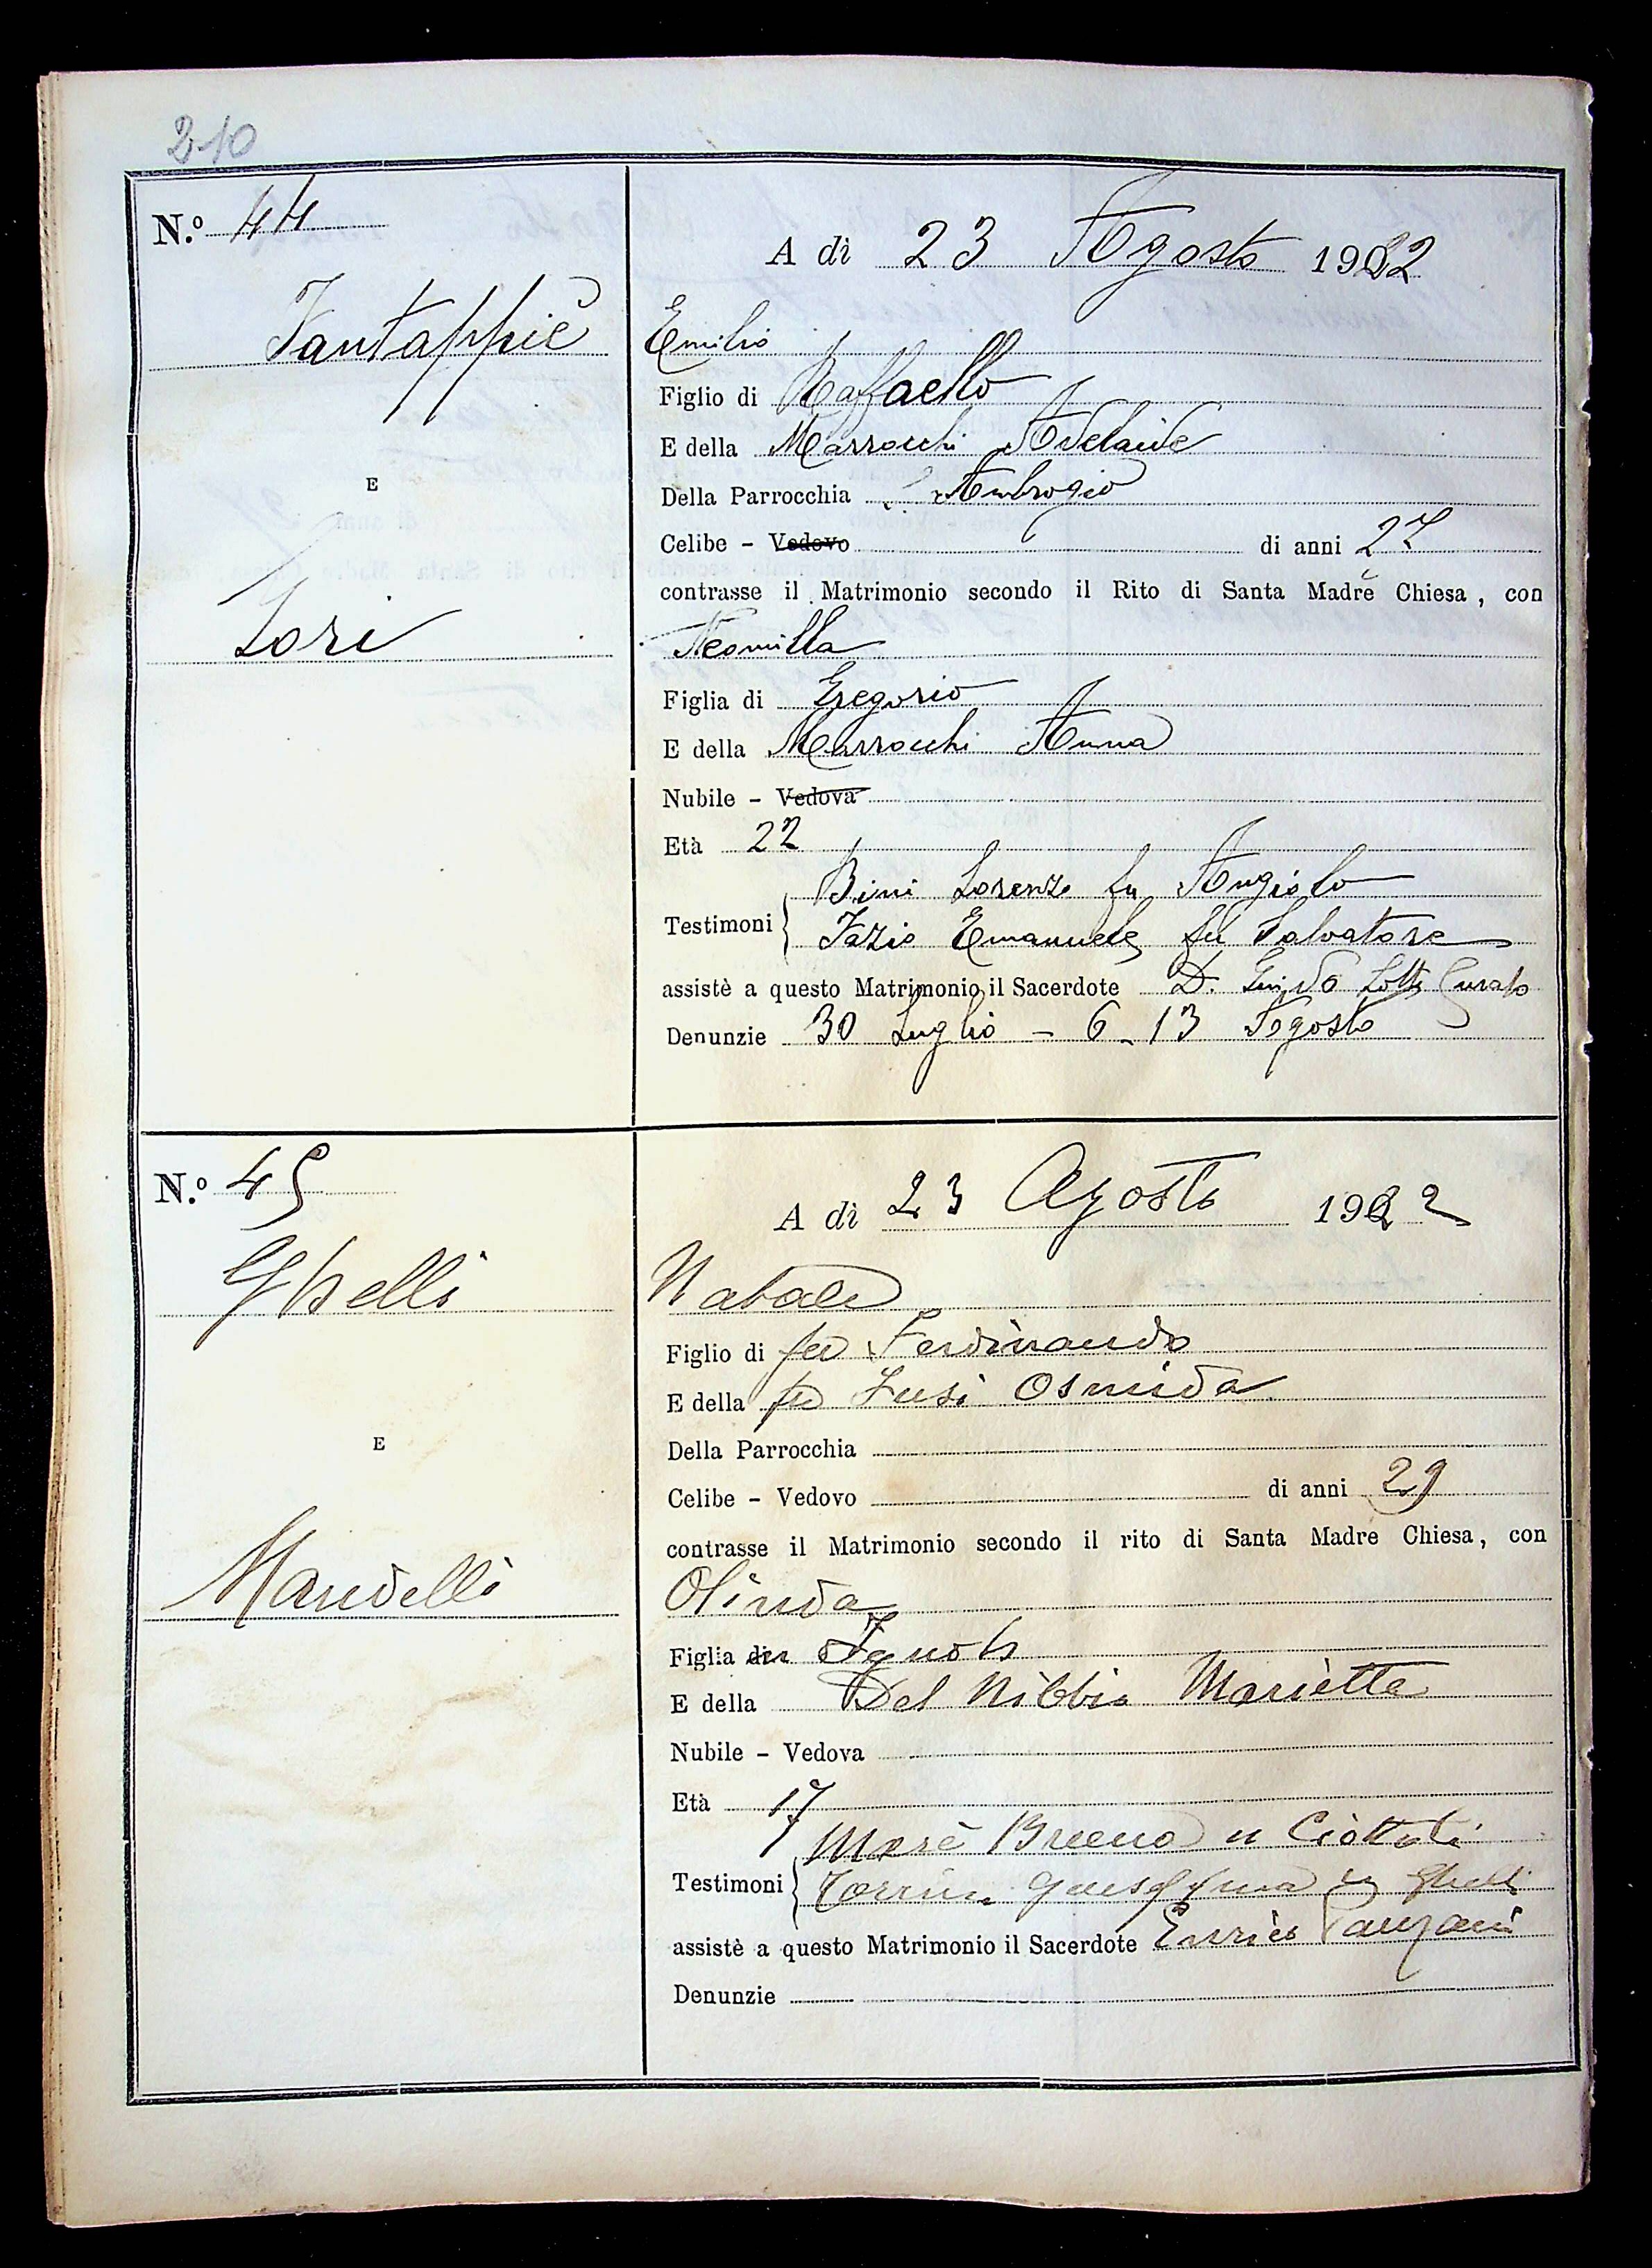 210
N.º 44
A dì 23 Agosto 1922
Fantappiè
Emilio
Figlio di Raffaello
E della Marrocchi Adelaide
Della Parrocchia S. Ambrogio
E
Celibe - Vedovo di anni 27
contrasse il Matrimonio secondo il Rito di Santa Madre Chiesa, con
Lori
Neomilla
Figlia di Gregorio
E della Marrocchi Anna
Nubile - Vedova
Età 22
Bini Lorenzo fu Angiolo
Testimoni
Fazio Emanuele fu Salvatore
assistè a questo Matrimonio il Sacerdote D. Guido Lotti Curato
Denunzie 30 Luglio - 6 - 13 Agosto
N.º 45
A dì 23 Agosto 1922
Ghelli
Natale
Figlio di fu Ferdinando
E della fu Fusi Osmida
E
Della Parrocchia
Celibe - Vedovo di anni 29
contrasse il Matrimonio secondo il rito di Santa Madre Chiesa, con
Mandelli
Olinda
Figlia di Ignoto
E della Del Nibbio Marietta
Nubile - Vedova
Età 17
Bruna in
Testimoni
Giuseppina in Ghelli
assistè a questo Matrimonio il Sacerdote Enrico Panzani
Denunzie